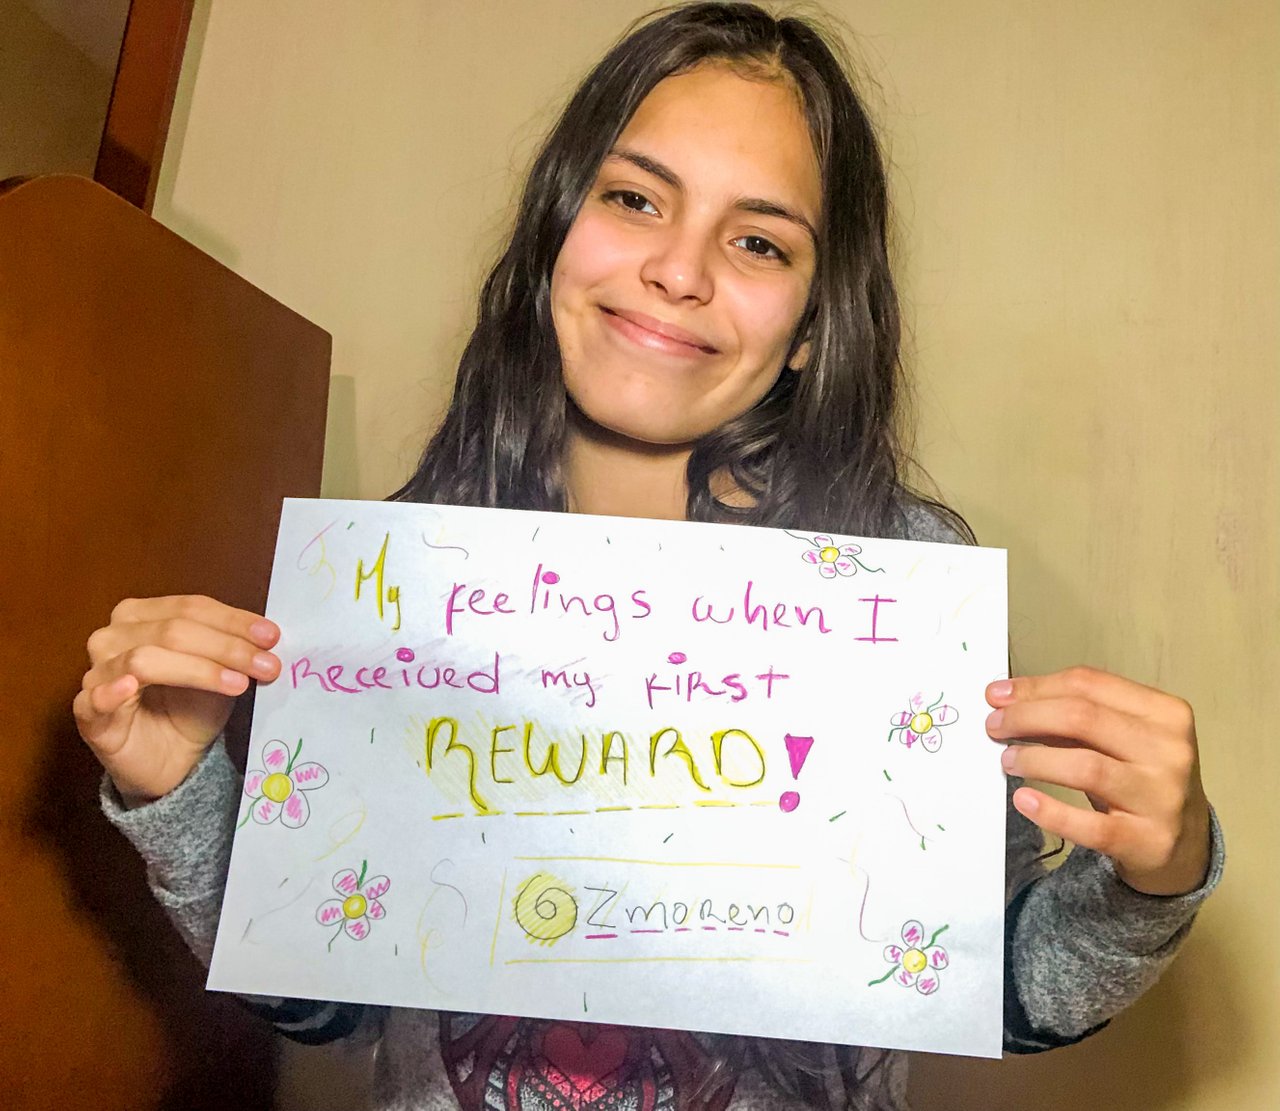 My feelings when I
Received my first
REWARD!
@Zmoreno